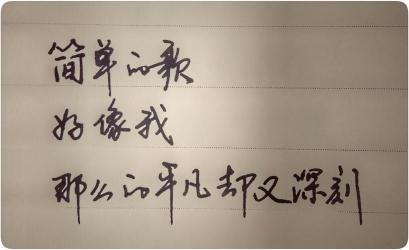 简单的歌
好像我
那么的平凡却又深刻